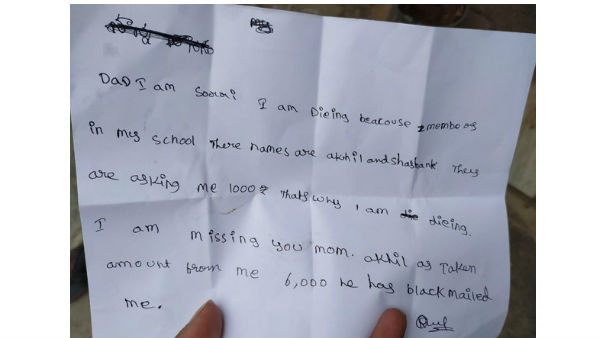 DaD I am Soorri I am Dieing beacouse 2 members
in my school There names are akhil and shashank They
are asking me 1000₹ thats why I am die dieing.
I am missing you mom. akhil as Taken
amount from me 6,000 he has blackmailed
me.